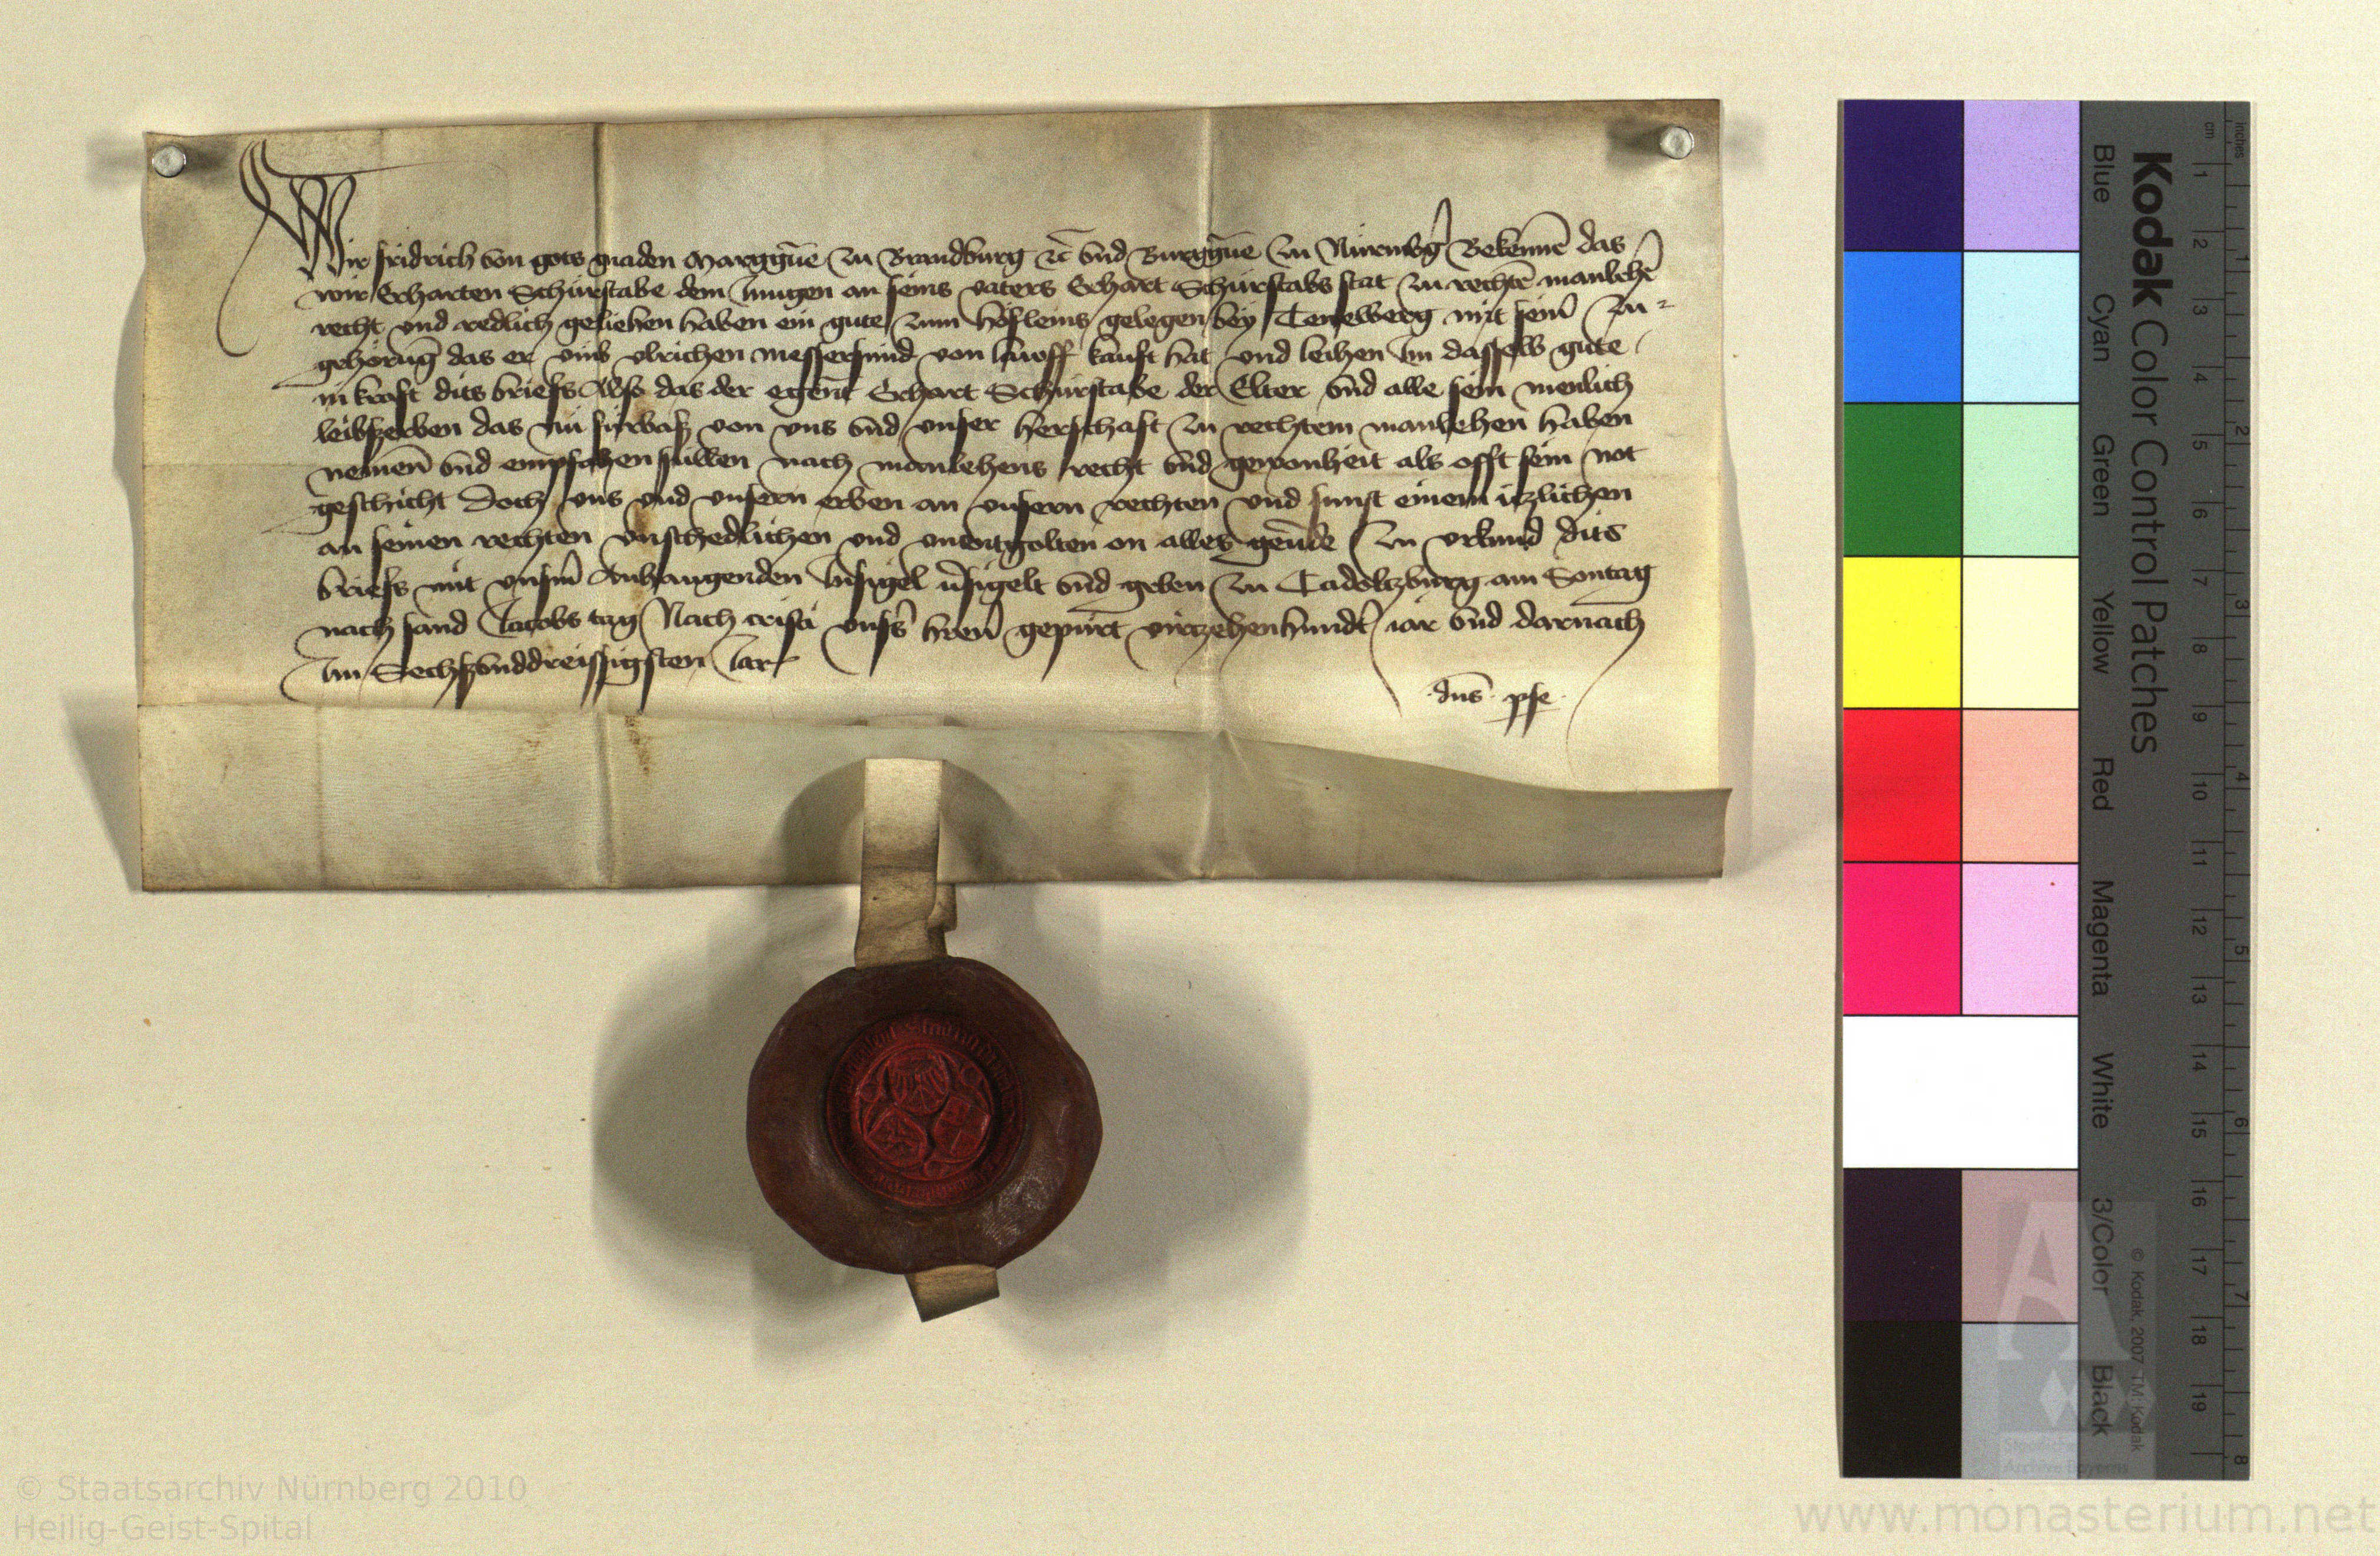 Wir fridrich von gots gnaden Marggūe zu Brandburg ⁊c̄ vnd Burggūe zu Nüremb̄g Bekenne̅ das
wir Erharten Schürstabe dem Jungen an seins vaters Erhart Schürstabs stat zu rechte̅ manlehe̅
recht vnd redlich geliehen haben ein gute zum höfleins gelegen bey mit sein̅ zu-
gehörūg das er vmb vlrichen messersmid von lauff kauft hat vnd leihen Im dasselb gute
in kraft dits briefs Also das der egen̅t Erhart Schürstabe der Elter vnd alle sein menlich
leibszerben das nu fürbasz von vns vnd vnser herschaft zu rechtem manlehen haben
nemen̅ vnd empfahen süllen nach manlehens recht vnd gewonheit als offt sein not
geschicht Doch vns vnd vnsern erben an vnsern rechten vnd sunst einem itzlichen
an seinen rechten vnschedlichen vnd vnentgolten on alles geūde Zu vrkund dits
briefs mit vnsm̅ Anhangenden Insigel v̄sigelt vnd geben zu Cadoltzburg am Sontag
nach sand Jacobs tag Nach cristi vnss̄ hren̅ gepürt virtzehenhundt̄ iar vnd darnach
Im Sechszvnddreissigsten Jar
dn̅s pse
Kodak Color Control Patches
Blue Cyan Green Yellow Red Magenta White 3/Color Black
cm 1 2 3 4 5 6 7 8 9 10 11 12 13 14 15 16 17 18 19
inches 1 2 3 4 5 6 7 8
© Kodak, 2007 TM: Kodak
© Staatsarchiv Nürnberg 2010
Heilig-Geist-Spital
www.monasterium.net